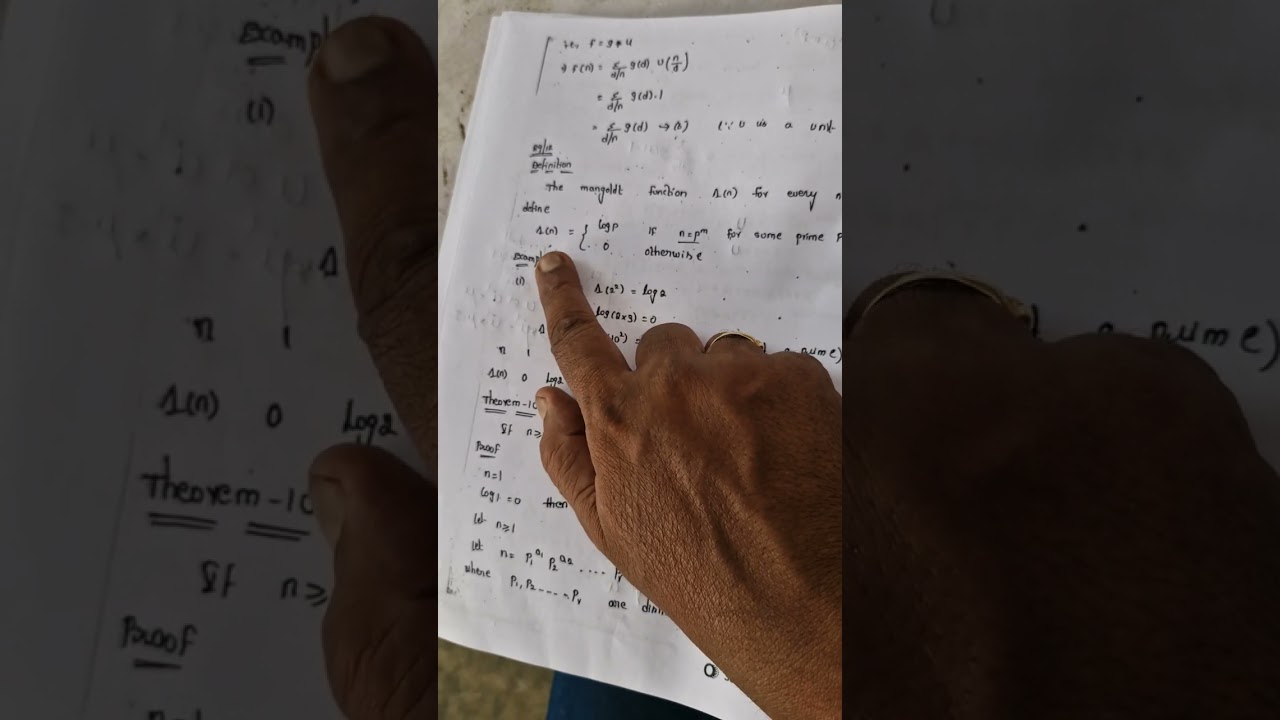 f = g * u
⇒ f(n) = Σ d/n g(d) u(n/d)
= Σ d/n g(d).1
= Σ d/n g(d) → (b) (∵ u is a unit
29/12
Definition
The mangoldt function Λ(n) for every n
define
Λ(n) = { log p if n = p^m for some prime p
0 otherwise
Exampl
(i) Λ(2²) = log 2
log(2×3) = 0
10²) =
a prime)
n 1
Λ(n) 0 log 2
Theorem-10
If n ≥
Proof
n=1
log 1 = 0 then
Let n ≥ 1
Let n = p₁^a₁ p₂^a₂ .... p
where p₁, p₂ ..... pᵣ are